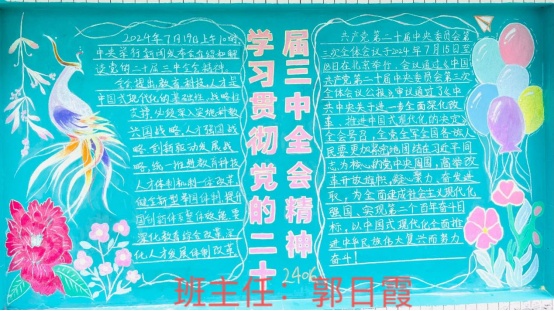 2024年7月19日上午10时
中央举行新闻发布会介绍和解
读党的二十届三中全会精神
会议提出教育、科技、人才是
中国式现代化的基础性、战略性
支撑，必须深入实施科教
兴国战略、人才强国战
略、创新驱动发展战
略，统一推进教育科技
人才体制机制一体改革，
健全新型举国体制，提升
国家创新体系整体效能，要
深化教育综合改革，深化
人才发展体制改革。
学习贯彻党的二十
届三中全会精神
共产党第二十届中央委员会第
三次全体会议于2024年7月15日至
18日在北京举行。会议通过《中国
共产党第二十届中央委员会第三次
全体会议公报》审议通过了《中
共中央关于进一步全面深化改
革、推进中国式现代化的决定》
全会号召，全党全军全国各族人
民要更加紧密地团结在以习近平同
志为核心的党中央周围，高举改
革开放旗帜，凝心聚力、奋发进
取，为全面建成社会主义现代化
强国、实现第二个百年奋斗目
标，以中国式现代化全面推
进中华民族伟大复兴而努力
奋斗！
2406
班主任：郭日霞